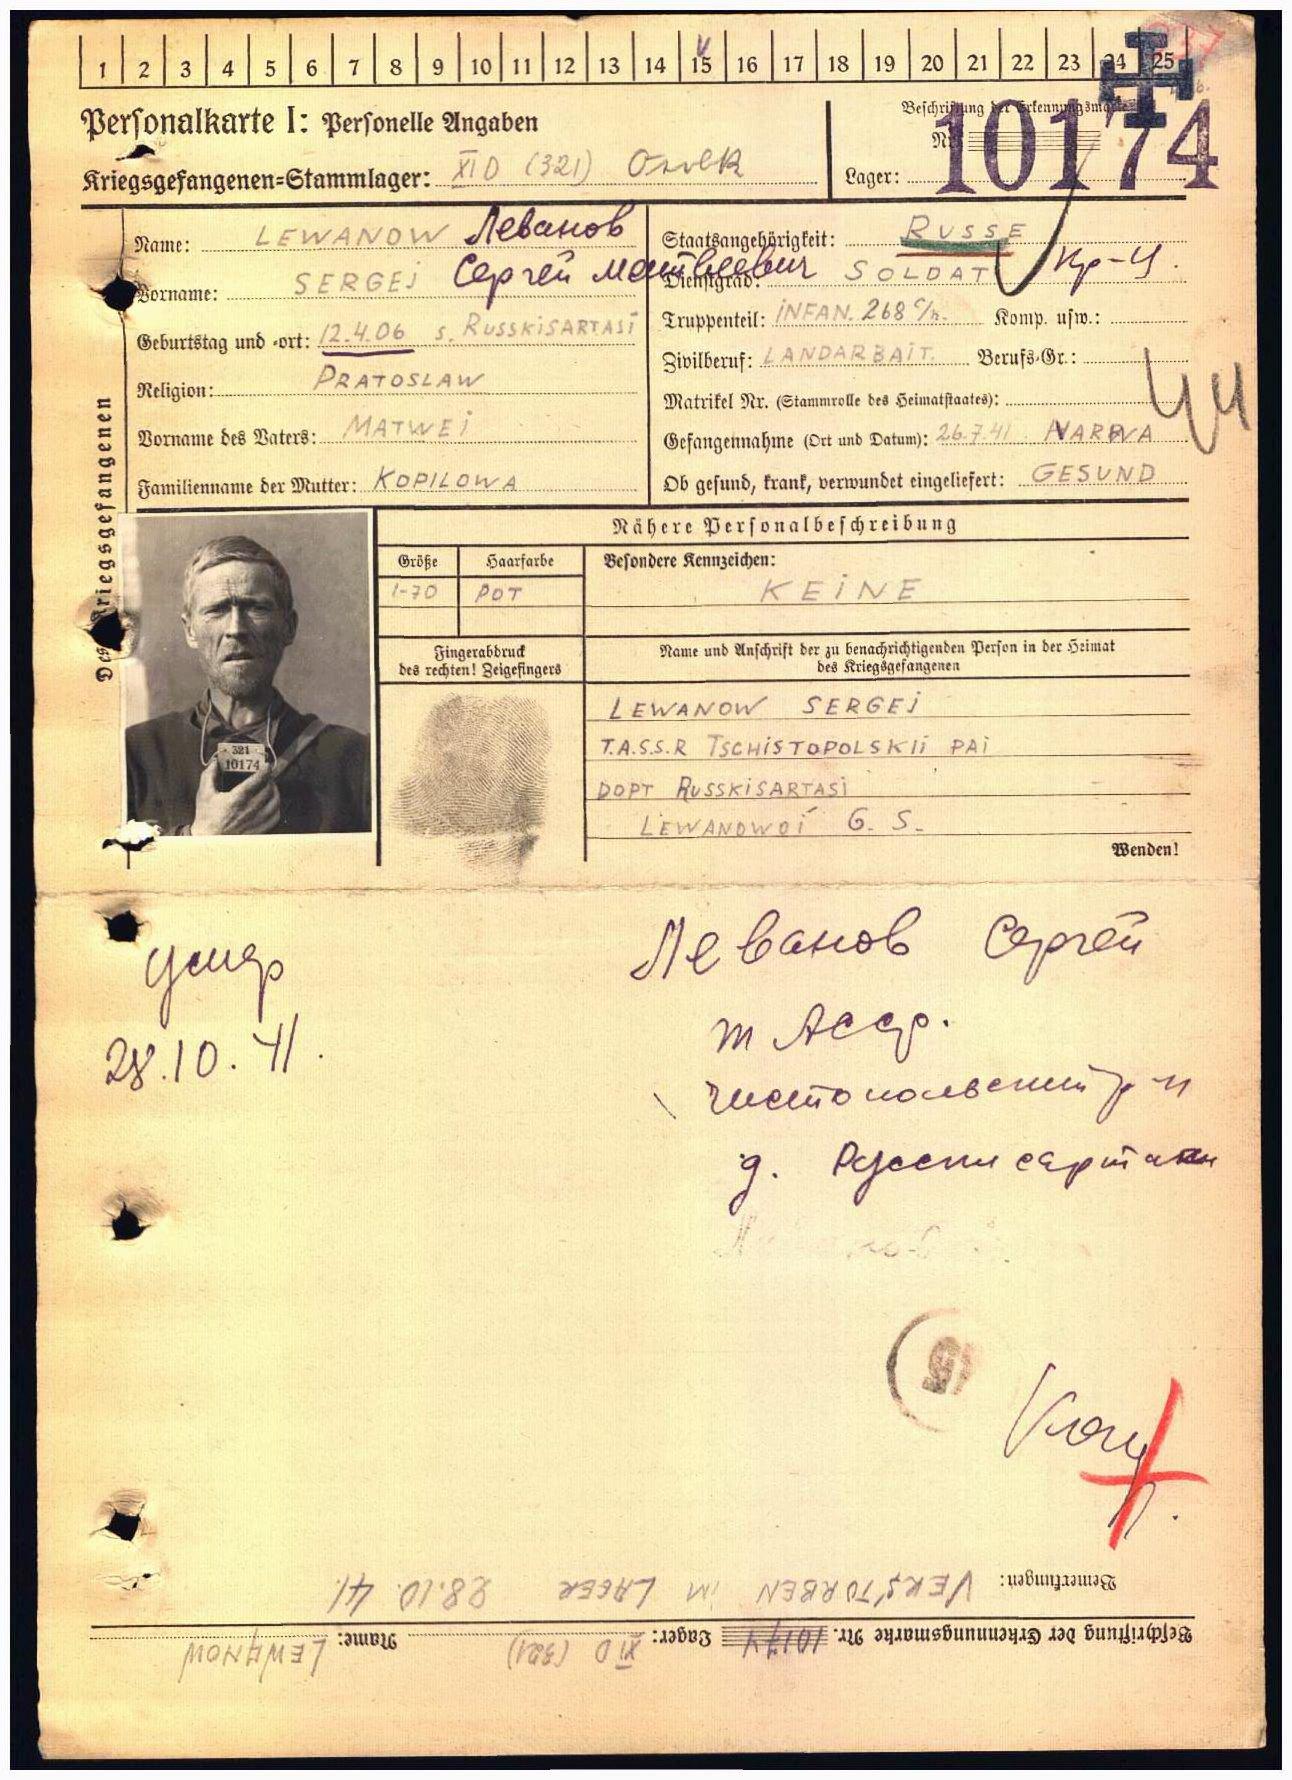 1 2 3 4 5 6 7 8 9 10 11 12 13 14 15 16 17 18 19 20 21 22 23 24 25
Personalkarte I: Personelle Angaben
Beschriftung der Erkennungsmarke
Nr.
10174
Kriegsgefangenen-Stammlager: XI D (321)
Lager:
Des Kriegsgefangenen
Name: LEWANOW Леванов
Vorname: SERGEJ Сергей Матвеевич
Geburtstag und -ort: 12.4.06 s. RUSSKISARTASI
Religion: PRATOSLAW
Vorname des Vaters: MATWEI
Familienname der Mutter: KOPILOWA
Staatsangehörigkeit: RUSSE
Dienstgrad: SOLDAT Кр-ц.
Truppenteil: INFAN. 268 Komp. usw.:
Zivilberuf: LANDARBAIT. Berufs-Gr.:
Matrikel Nr. (Stammrolle des Heimatstaates):
Gefangennahme (Ort und Datum): 26.7.41 NARWA
Ob gesund, krank, verwundet eingeliefert: GESUND
44
Nähere Personalbeschreibung
Größe Haarfarbe Besondere Kennzeichen:
1-70 POT KEINE
321
10174
Fingerabdruck
des rechten! Zeigefingers
Name und Anschrift der zu benachrichtigenden Person in der Heimat
des Kriegsgefangenen
LEWANOW SERGEJ
T.A.S.S.R TSCHISTOPOLSKII PAI
DOPT RUSSKISARTASI
LEWANOWOI G. S.
Wenden!
умер
28.10.41.
Леванов Сергей
т Асср.
чистопольский р-н
д. Русски
15
Bemerkungen: VERSTORBEN IM LAGER 28.10.41.
Beschriftung der Erkennungsmarke Nr. 10174 Lager: XI D (321) Name: LEWANOW